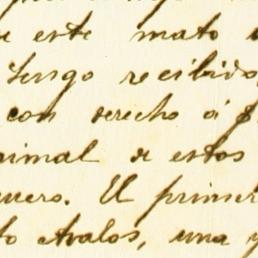 este mato
Tengo recibido,
con derecho á
nimal de estos
uero. El primer
to Avalos, una y